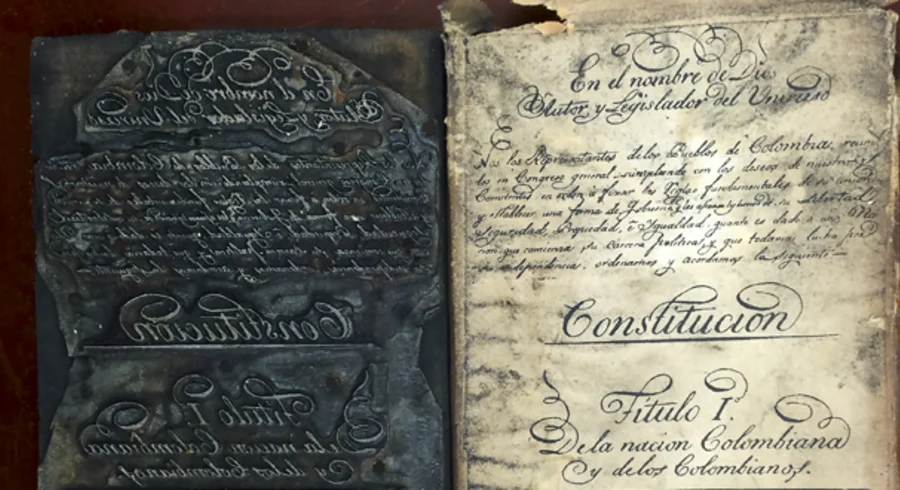 En el nombre de Dios
Autor y Legislador del Universo
Nos los Representantes de los Pueblos de Colombia, reuni
dos en Congreso general, cumpliendo con los deseos de nuestros
Comitentes en orden á fixar las reglas fundamentales de su union
y establecer una forma de Gobierno que les afianze los bienes de su Libertad
Seguridad, Propiedad, é Igualdad, quanto es dado á una Na
cion que comienza su Carrera politica, y que todavia lucha por
su independencia, ordenamos y acordamos la siguiente
Constitucion
Título I.
De la nacion Colombiana
y de los Colombianos.